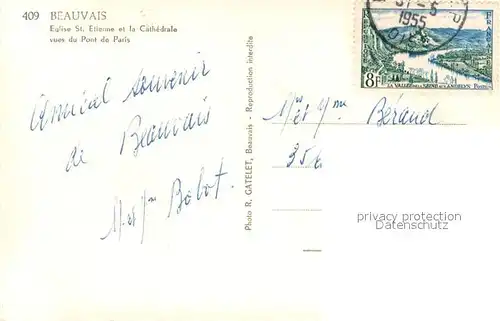 409 BEAUVAIS
Eglise St. Etienne et la Cathédrale
vues du Pont de Paris
Amical souvenir
de Beauvais
Mr et Mme Bobot.
Photo R. GATELET, Beauvais - Reproduction interdite
1955
8F
LA VALLÉE DE LA SEINE AUX ANDELYS
Mr et Mme Béraud
privacy protection
DELCAMPE